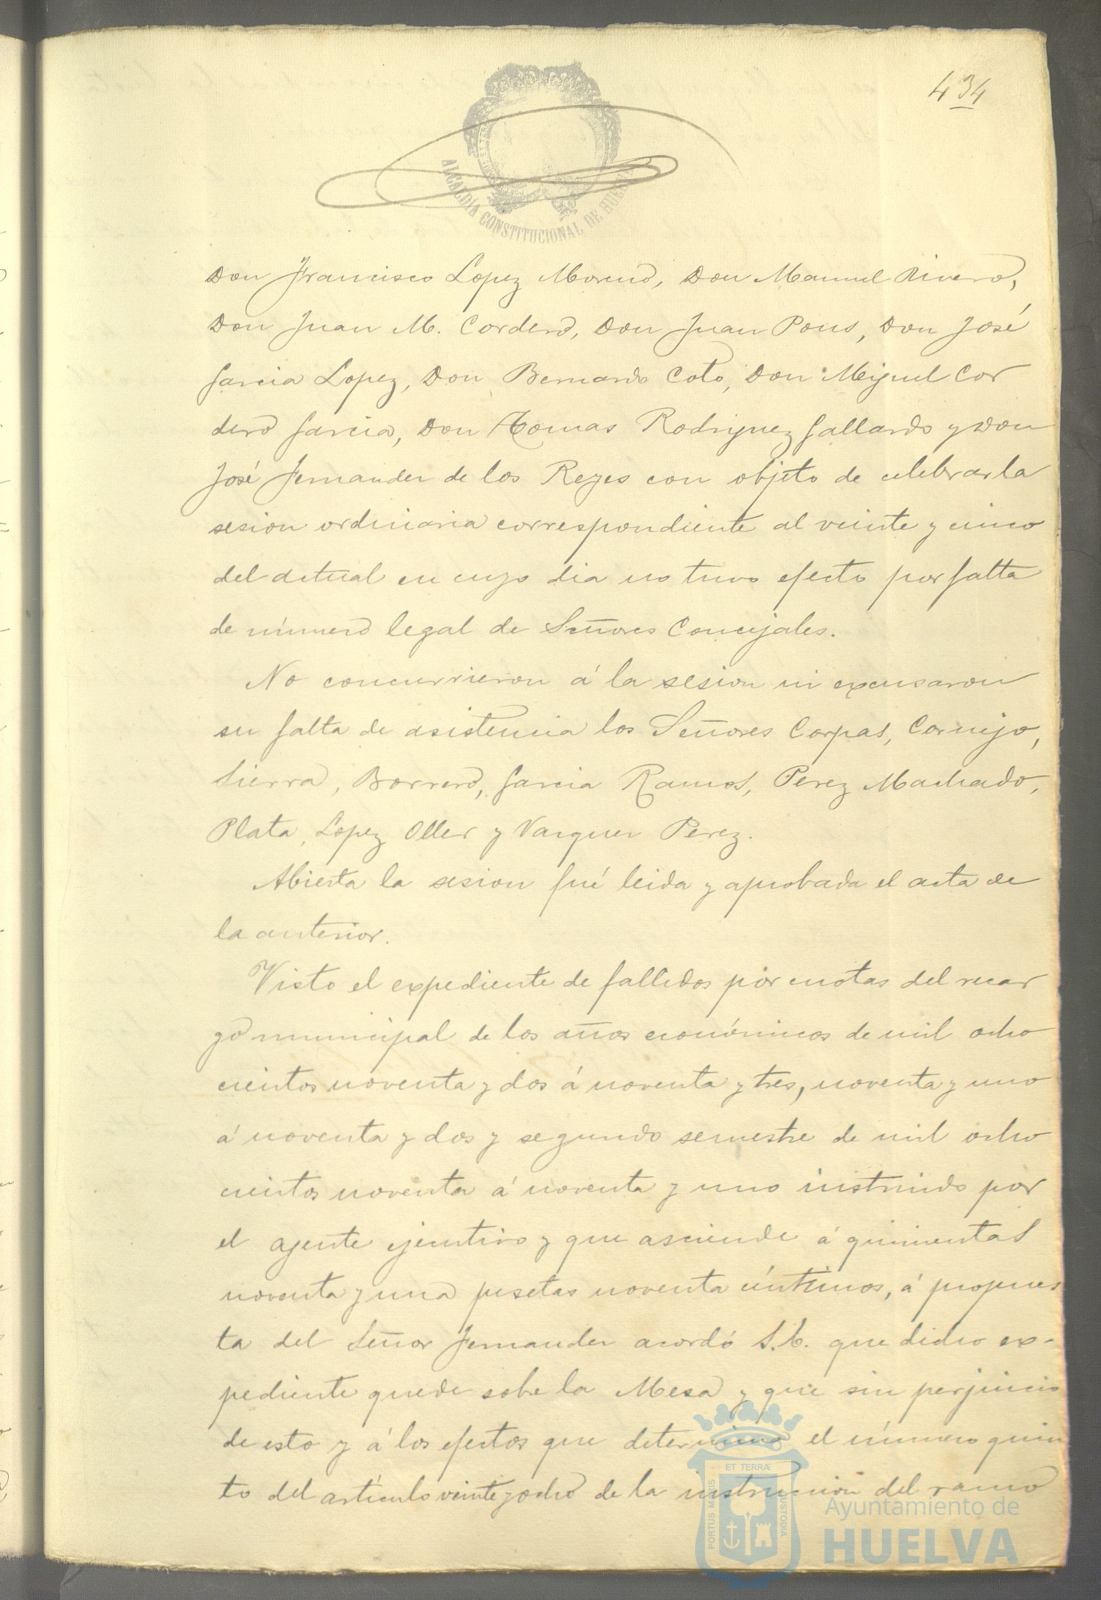 434
ALCALDIA CONSTITUCIONAL DE HUELVA
Don Francisco Lopez Moreno, Don Manuel Rivero,
Don Juan M. Cordero, Don Juan Pons, Don José
Garcia Lopez, Don Bernardo Coto, Don Miguel Cor
dero Garcia, Don Tomas Rodriguez Gallardo y Don
José Fernander de los Reyes con objeto de celebrar la
sesion ordinaria correspondiente al veinte y cinco
del actual en cuyo dia no tuvo efecto por falta
de número legal de Señores Concejales.
No concurrieron á la sesion ni excusaron
su falta de asistencia los Señores Corpas, Cornejo,
Sierra, Borrero, Garcia Ramos, Perez Machado,
Plata, Lopez Oller y Vazquer Perez.
Abierta la sesion fué leida y aprobada el acta de
la anterior.
Visto el expediente de fallidos por cuotas del recar
go municipal de los años económicos de mil ocho
cientos noventa y dos á noventa y tres, noventa y uno
á noventa y dos y segundo semestre de mil ocho
cientos noventa á noventa y uno instruido por
el agente ejecutivo y que asciende á quinientas
noventa y una pesetas noventa céntimos, á propues
ta del Señor Fernander acordó S.E. que dicho ex-
pediente quede sobre la Mesa y que sin perjuicio
de esto y á los efectos que determina el número quin
to del artículo veinte y ocho de la instrucción del ramo
PORTUS MARIS ET TERRÆ CUSTODIA
Ayuntamiento de
HUELVA